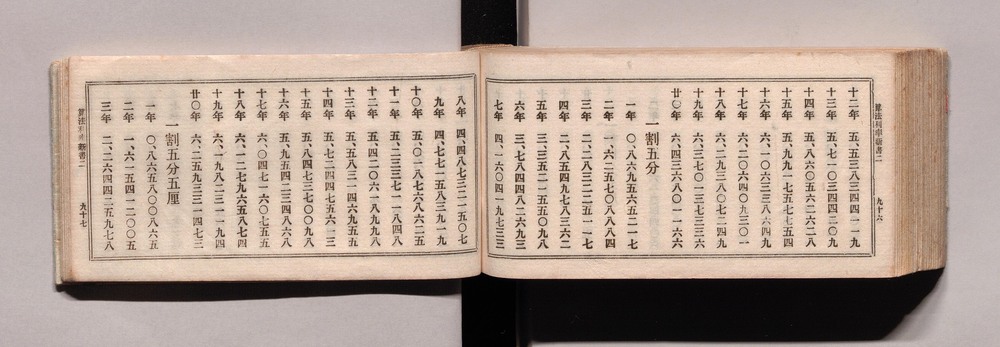 算法利率新書二
九十六
十二年 五、五三八三四四一一九
十三年 五、七一〇三四四二〇九
十四年 五、八六〇五六二六二八
十五年 五、九九一七五七七五四
十六年 六、一〇六三三八六四九
十七年 六、二〇六四〇九三〇一
十八年 六、二九三八〇七二四九
十九年 六、三七〇一三七三三六
廿〇年 六、四三六八〇一一六六
一割五分
一年 〇、八六九五六五二一七
二年 一、六二五七〇八八八四
三年 二、二八三二二五一一七
四年 二、八五四九七八三六二
五年 三、三五二一五五〇九八
六年 三、七八四四八二六九三
七年 四、一六〇四一九七三三
八年 四、四八七三二一五〇七
九年 四、七七一五八三九一九
十〇年 五、〇一八七六八六二五
十一年 五、二三三七一一八四八
十二年 五、四二〇六一八九九八
十三年 五、五八三一四六九五五
十四年 五、七二四四七五六一三
十五年 五、八四七三七〇〇九八
十六年 五、九五四二三四八六八
十七年 六、〇四七一六〇七五五
十八年 六、一二七九六五八七四
十九年 六、一九八二三一一九四
廿〇年 六、二五九三三一四七三
一割五分五厘
一年 〇、八六五八〇〇八六五
二年 一、六一五四一二〇〇五
三年 二、二六四四二五九七八
算法利率新書二
九十七